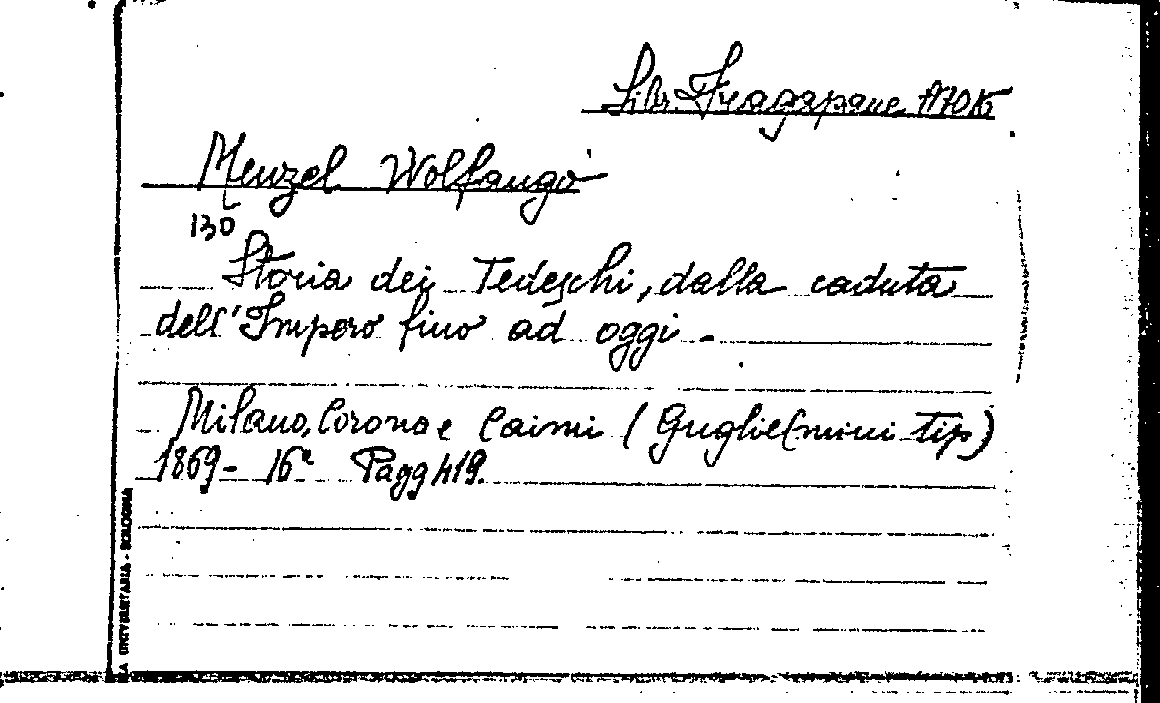 Lib. Fragapane A70K
Menzel Wolfango
130
Storia dei Tedeschi, dalla caduta
dell'Impero fino ad oggi -
Milano, Corona e Caimi (Guglielmini tip)
1869 - 16° Pagg 419.
LA UNIVERSITARIA - BOLOGNA